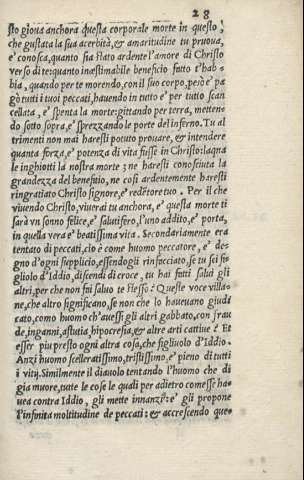 28
sto gioua anchora questa corporale morte in questo,
che gustata la sua acerbità, & amaritudine tu pruoua,
e' conosca, quanto sia stato ardente l'amore di Christo
verso di te: quanto inæstimabile beneficio fatto t'hab
bia, quando per te morendo, con il suo corpo, però e' pa
gò tutti i tuoi peccati, hauendo in tutto e' per tutto scan
cellata, e' spenta la morte: gittando per terra, metten
do sotto sopra, e' sprezzando le porte del inferno. Tu al
trimenti non mai haresti potuto prouare, & intendere
quanta forza, e' potenza di vita fusse in Christo: laqua
le inghiotti la nostra morte: ne haresti conosciuta la
grandezza del benefitio, ne così ardentemente haresti
ringratiato Christo signore, e' redētore tuo. Per il che
viuendo Christo, viuerai tu anchora, e' questa morte ti
sarà vn sonno felice, e' salutifero, l'uno addito, e' porta,
in quella vera e' beatissima vita. Secondariamente era
tentato di peccati, cio è come huomo peccatore, e' de-
gno d'ogni supplicio, essendogli rinfacciato, se tu sei fi-
gliolo d'Iddio, discendi di croce, tu hai fatti salui gli
altri, per che non fai saluo te stesso? Queste voce villa-
ne, che altro significano, se non che lo haueuano giudi
cato, come huomo ch'auessi gli altri gabbato, con frau
de, inganni, astutia, hipocresia, & altre arti cattiue? Et
esser piu presto ogni altra cosa, che figliuolo d'Iddio.
Anzi huomo scelleratissimo, tristissimo, e' pieno di tutti
i vitij. Similmente il diauolo tentando l'huomo che di
gia muore, tutte le cose le quali per adietro comesse ha-
uea contra Iddio, gli mette innanzi: e' gli propone
l'infinita moltitudine de peccati: & accrescendo que-